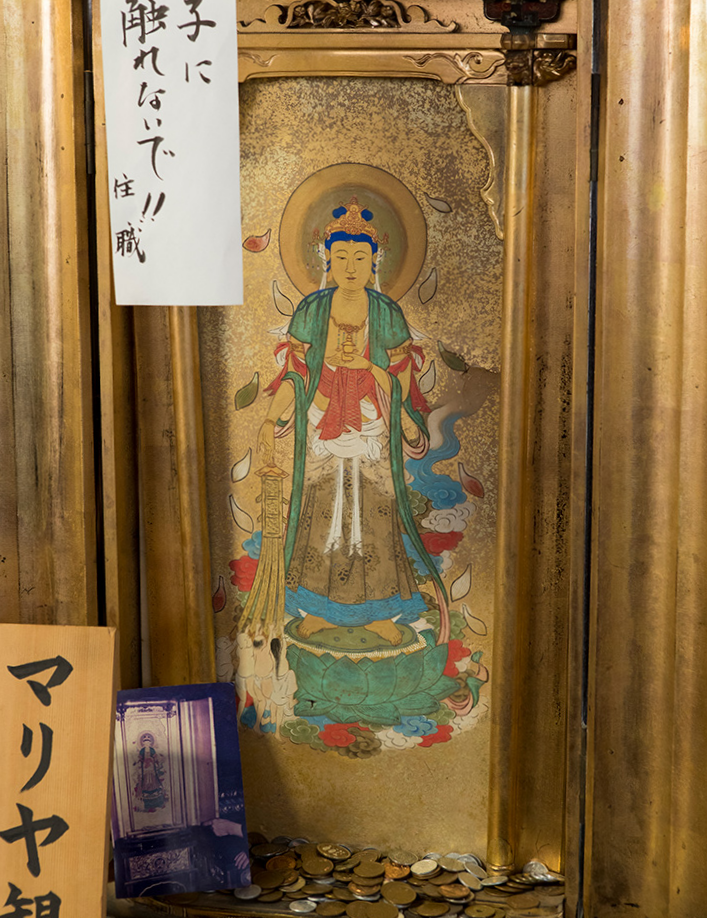 子に
触れないで!!
住職
マリヤ観